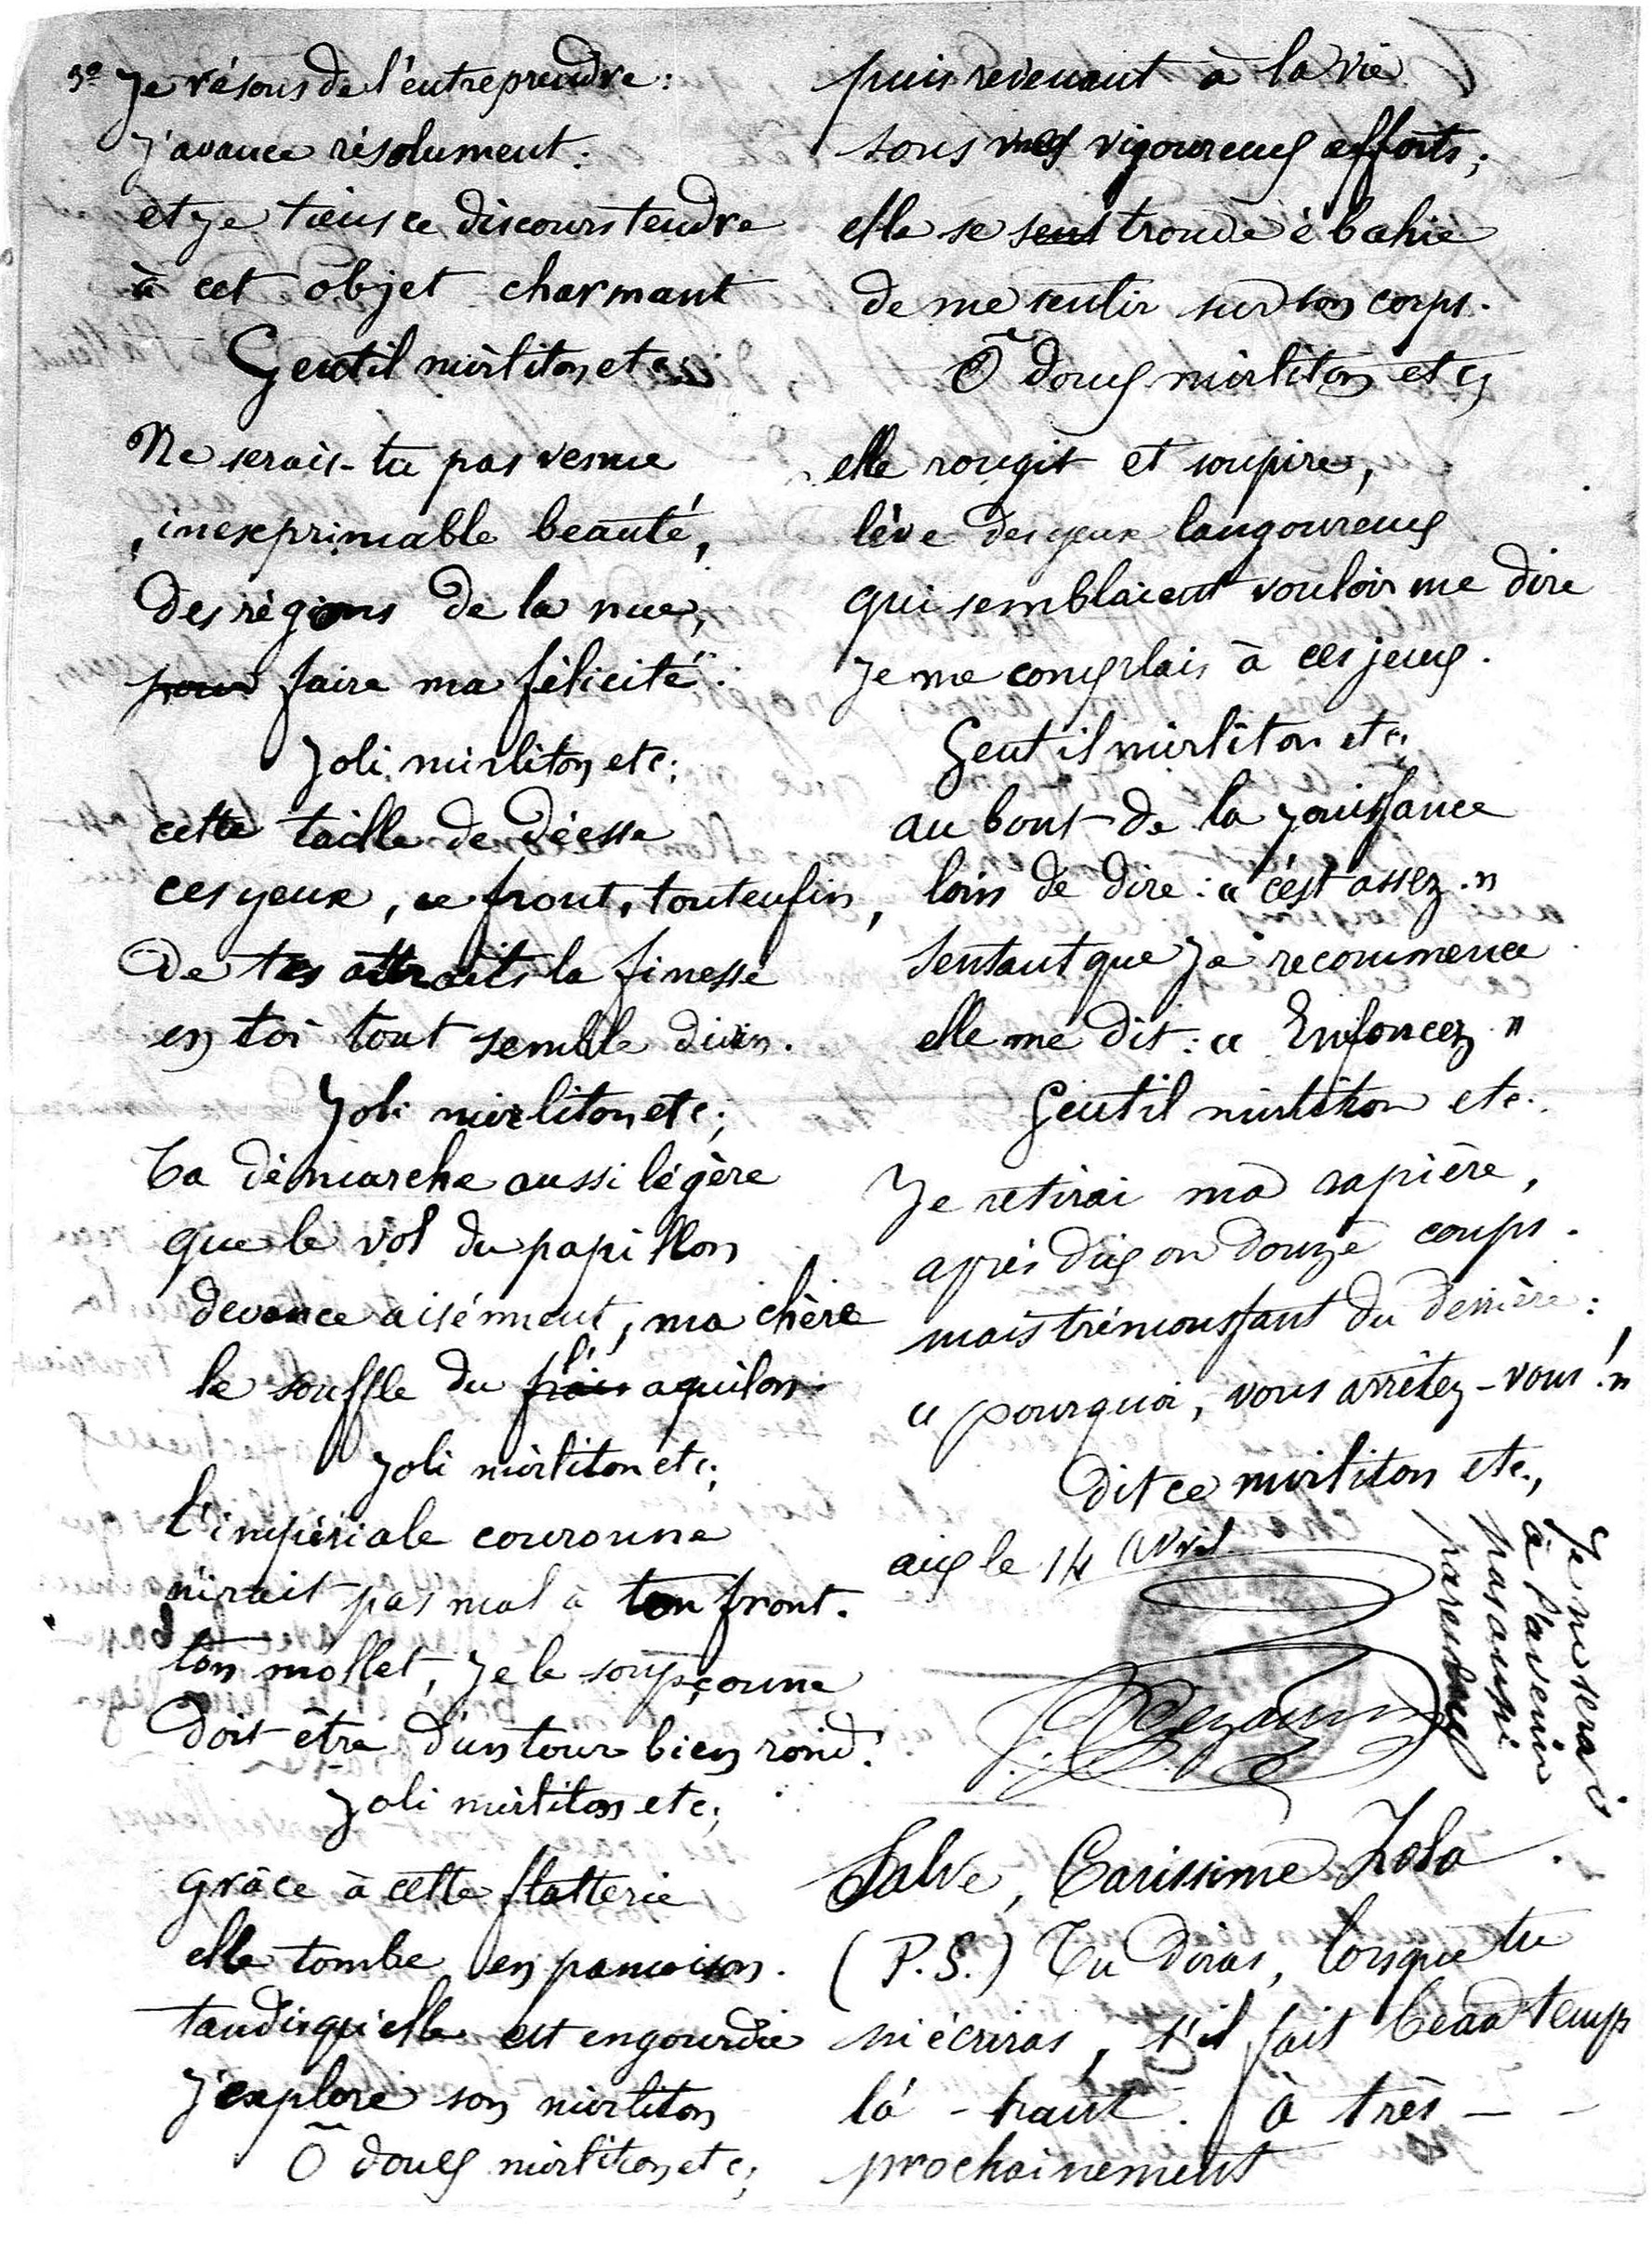 3º Je résous de l'entreprendre:
J'avance résolument:
et je tiens ce discours tendre
à cet objet charmant
Gentil mirliton etc.
Ne serais-tu pas venue
, inexprimable beauté,
des régions de la nue,
pour faire ma félicité.
Joli mirliton etc;
cette taille de déesse
ces yeux, ce front, tout enfin,
de tes attraits la finesse
en toi tout semble divin.
Joli mirliton etc;
Ta démarche aussi légère
que le vol du papillon
devance aisément, ma chère
le souffle du frais l'aquilon.
Joli mirliton etc;
L'impériale couronne
n'irait pas mal à ton front.
ton mollet, je le soupçonne
doit être d'un tour bien rond.
Joli mirliton etc;
grâce à cette flatterie
elle tombe en pamoison.
tandis qu'elle est engourdie
J'explore son mirliton
Ô doux mirliton etc;
puis revenant à la vie
sous mes vigoureux efforts;
elle se sent trouve ébahie
de me sentir sur son corps.
Ô doux mirliton etc;
elle rougit et soupire,
lève des yeux langoureux
qui semblaient vouloir me dire
Je me complais à ces jeux.
Gentil mirliton etc;
au bout de la jouissance
loin de dire: « c'est assez. »
Sentant que je recommence
elle me dit: « Enfoncez »
Gentil mirliton etc.
Je retirai ma rapière,
après dix ou douze coups.
mais trémoussant du derrière:
« pourquoi, vous arrêtez-vous! »
Dit ce mirliton etc,
aix le 14 Avril
Je ne serai
à l'avenir
pas aussi
paresseux
P. Cezanne
Salve, Carissime Zola.
(P.S.) Tu diras, lorsque tu
m'écriras, s'il fait beau temps
là-haut. à très - -
prochainement